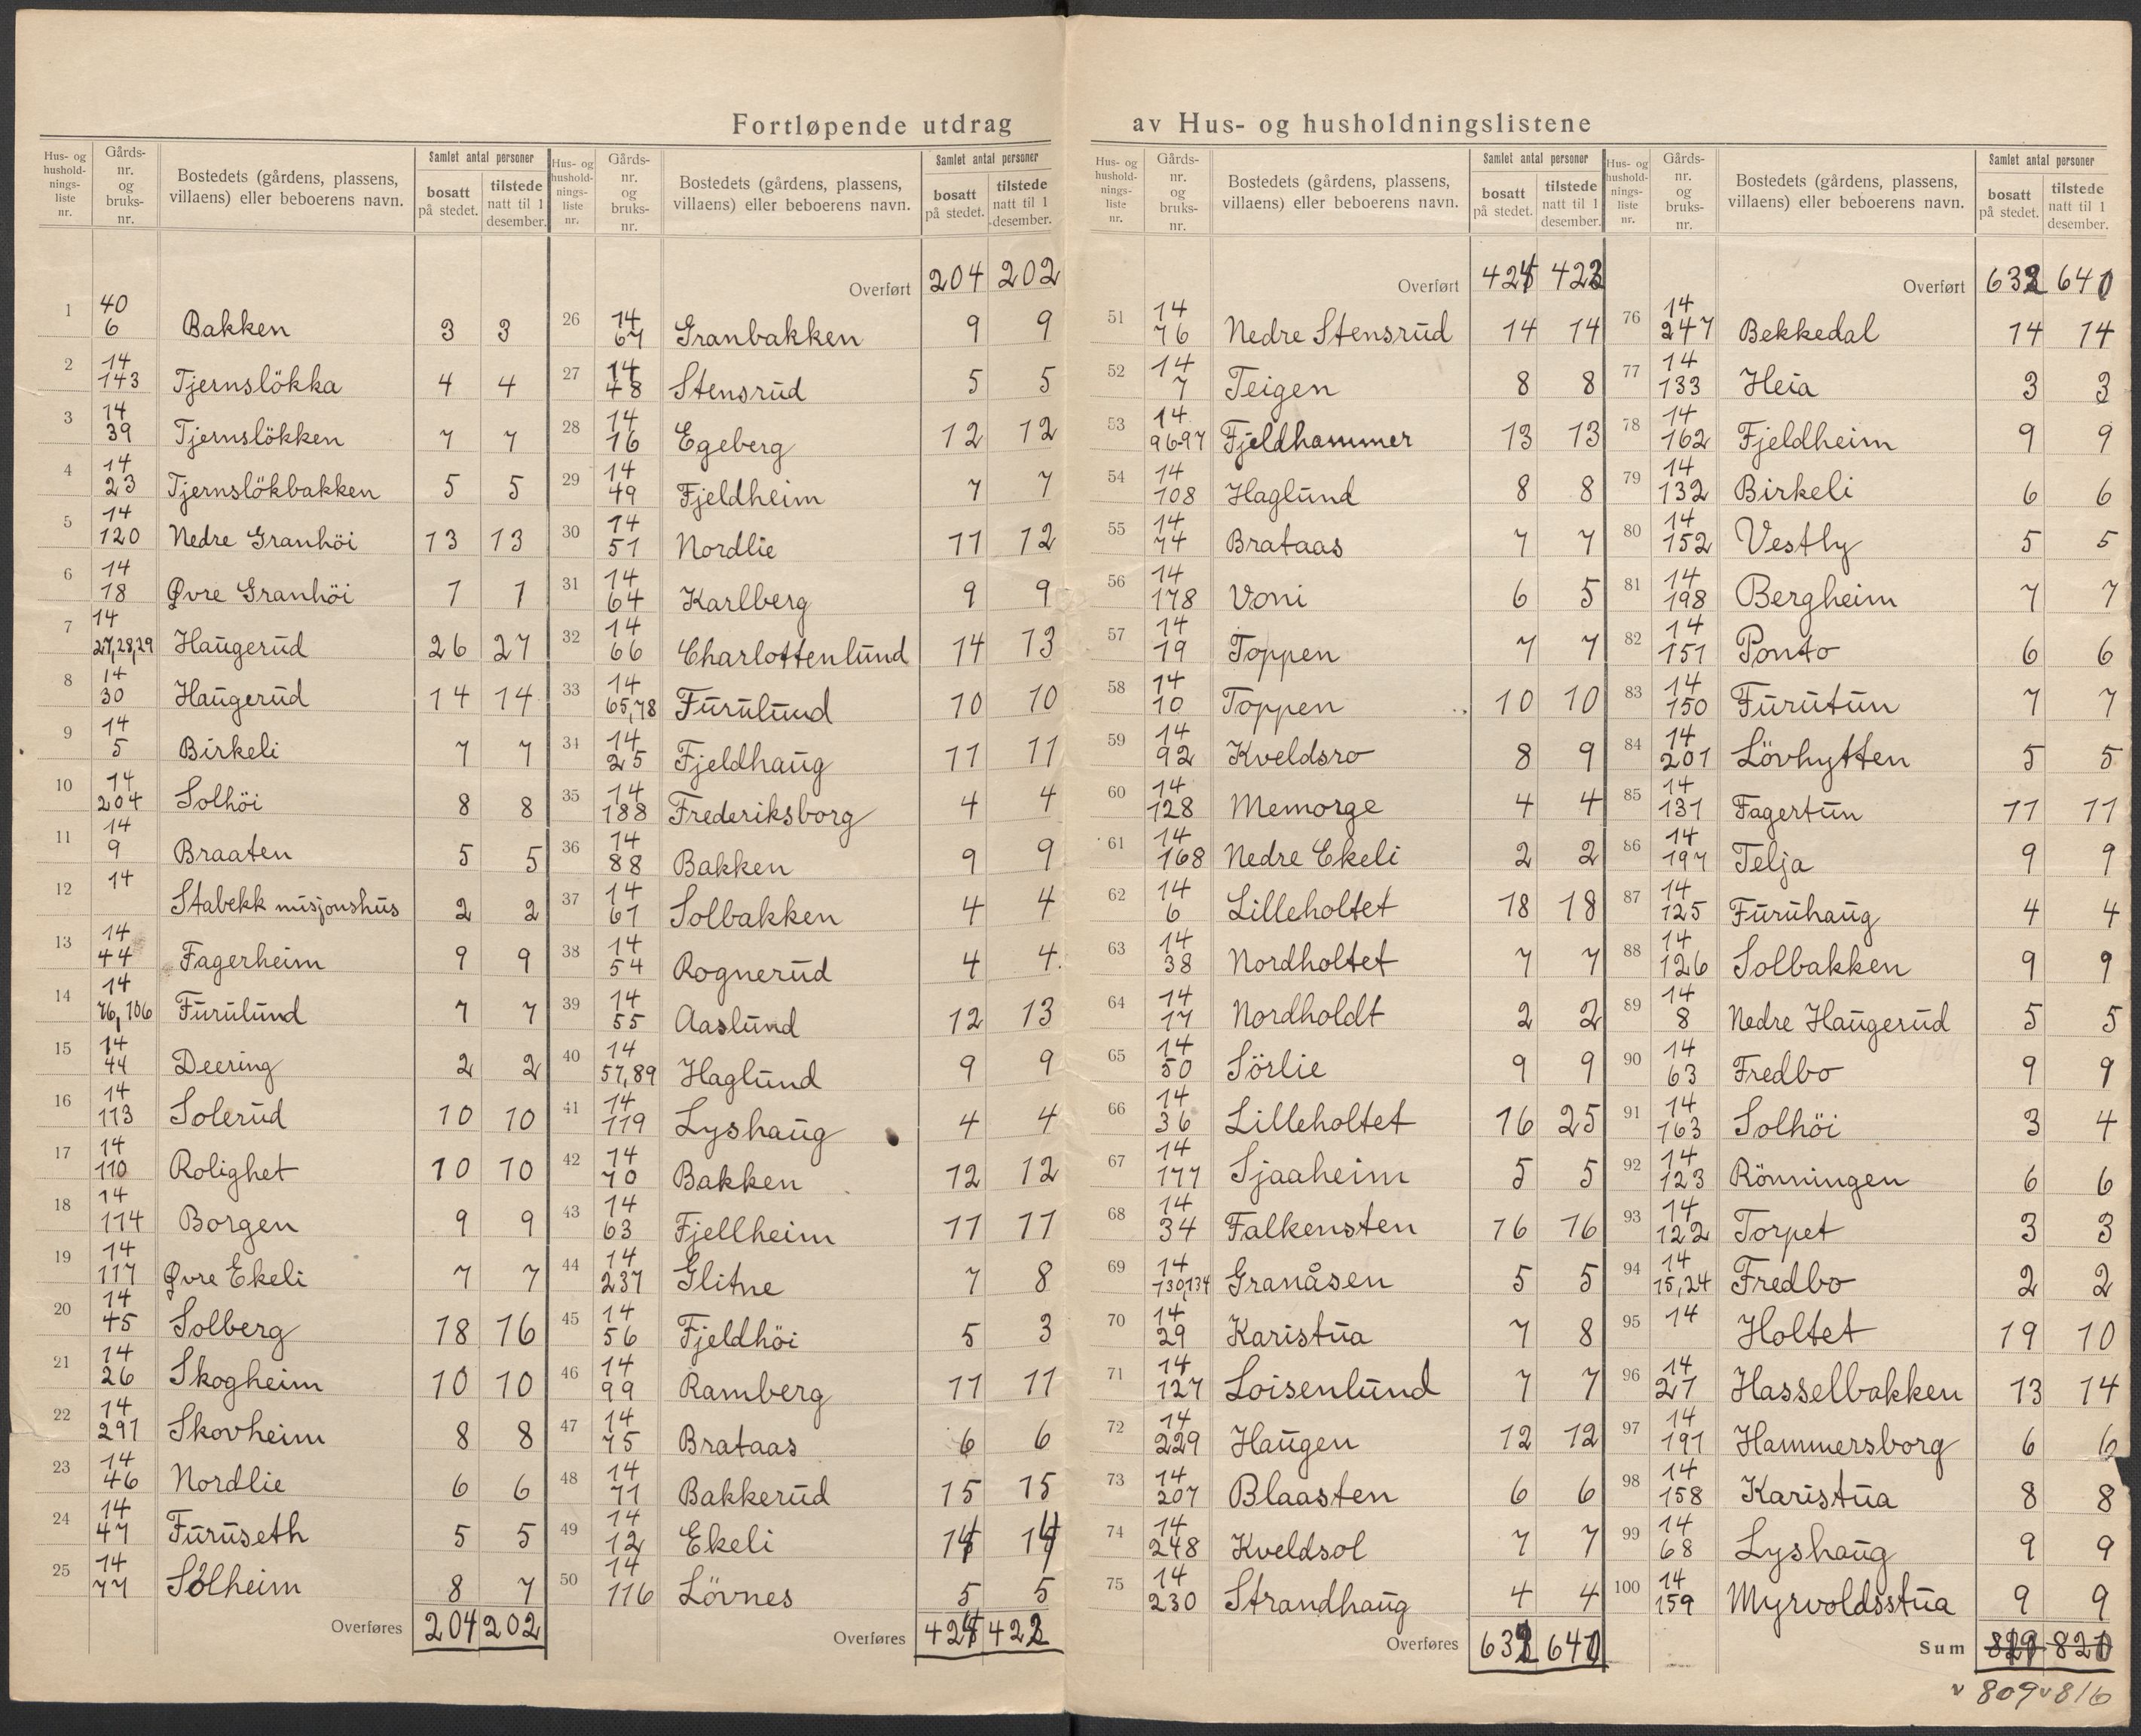 Fortløpende utdrag av Hus- og husholdningslistene
Hus- og husholdnings-liste nr. | Gårds-nr. og bruks-nr. | Bostedets (gårdens, plassens, villaens) eller beboerens navn. | Samlet antal personer | bosatt på stedet. | tilstede natt til 1 desember.
1 40 6 Bakken 3 3
2 14 143 Tjernslökka 4 4
3 14 39 Tjernslökken 7 7
4 14 23 Tjernslökbakken 5 5
5 14 120 Nedre Granhöi 13 13
6 14 18 Øvre Granhöi 1 1
7 14 27,28,29 Haugerud 26 27
8 14 30 Haugerud 14 14
9 14 5 Birkeli 7 7
10 14 204 Solhöi 8 8
11 14 9 Braaten 5 5
12 14 Stabekk misjonshus 2 2
13 14 44 Fagerheim 9 9
14 14 76, 106 Furulund 7 7
15 14 44 Deering 2 2
16 14 113 Solerud 10 10
17 14 110 Rolighet 10 10
18 14 114 Borgen 9 9
19 14 117 Øvre Ekeli 7 7
20 14 45 Solberg 18 16
21 14 26 Skogheim 10 10
22 14 291 Skovheim 8 8
23 14 46 Nordlie 6 6
24 14 47 Furuseth 5 5
25 14 77 Solheim 8 7
Overføres 204 202
Hus- og husholdnings-liste nr. | Gårds-nr. og bruks-nr. | Bostedets (gårdens, plassens, villaens) eller beboerens navn. | Samlet antal personer | bosatt på stedet. | tilstede natt til 1 desember.
Overført 204 202
26 14 67 Granbakken 9 9
27 14 48 Stensrud 5 5
28 14 16 Egeberg 12 12
29 14 49 Fjeldheim 7 7
30 14 51 Nordlie 11 12
31 14 64 Karlberg 9 9
32 14 66 Charlottenlund 14 13
33 14 65,78 Furulund 10 10
34 14 25 Fjeldhaug 11 11
35 14 188 Frederiksborg 4 4
36 14 88 Bakken 9 9
37 14 61 Solbakken 4 4
38 14 54 Rognerud 4 4
39 14 55 Aaslund 12 13
40 14 57,89 Haglund 9 9
41 14 119 Lyshaug 4 4
42 14 70 Bakken 12 12
43 14 63 Fjellheim 11 11
44 14 237 Glitne 7 8
45 14 56 Fjeldhöi 5 3
46 14 99 Ramberg 11 11
47 14 75 Brataas 6 6
48 14 71 Bakkerud 15 15
49 14 12 Ekeli 14 14
50 14 116 Lövnes 5 5
Overføres 424 422
Hus- og husholdnings-liste nr. | Gårds-nr. og bruks-nr. | Bostedets (gårdens, plassens, villaens) eller beboerens navn. | Samlet antal personer | bosatt på stedet. | tilstede natt til 1 desember.
Overført 424 422
51 14 76 Nedre Stensrud 14 14
52 14 7 Teigen 8 8
53 14 96-97 Fjeldhammer 13 13
54 14 108 Haglund 8 8
55 14 74 Brataas 7 7
56 14 178 Voni 6 5
57 14 19 Toppen 7 7
58 14 10 Toppen 10 10
59 14 92 Kveldsro 8 9
60 14 128 Memorge 4 4
61 14 168 Nedre Ekeli 2 2
62 14 6 Lilleholtet 18 18
63 14 38 Nordholtet 7 7
64 14 17 Nordholdt 2 2
65 14 50 Sörlie 9 9
66 14 36 Lilleholtet 16 25
67 14 177 Sjaaheim 5 5
68 14 34 Falkensten 16 16
69 14 130,134 Granåsen 5 5
70 14 29 Karistua 7 8
71 14 127 Loisenlund 7 7
72 14 229 Haugen 12 12
73 14 207 Blaasten 6 6
74 14 248 Kveldsol 7 7
75 14 230 Strandhaug 4 4
Overføres 632 640
Hus- og husholdnings-liste nr. | Gårds-nr. og bruks-nr. | Bostedets (gårdens, plassens, villaens) eller beboerens navn. | Samlet antal personer | bosatt på stedet. | tilstede natt til 1 desember.
Overført 632 640
76 14 247 Bekkedal 14 14
77 14 133 Heia 3 3
78 14 162 Fjeldheim 9 9
79 14 132 Birkeli 6 6
80 14 152 Vestly 5 5
81 14 198 Bergheim 7 7
82 14 151 Ponto 6 6
83 14 150 Furutun 7 7
84 14 201 Lövhytten 5 5
85 14 131 Fagertun 11 11
86 14 197 Telja 9 9
87 14 125 Furuhaug 4 4
88 14 126 Solbakken 9 9
89 14 8 Nedre Haugerud 5 5
90 14 63 Fredbo 9 9
91 14 163 Solhöi 3 4
92 14 123 Rönningen 6 6
93 14 122 Torpet 3 3
94 14 15,24 Fredbo 2 2
95 14 Holtet 19 10
96 14 21 Hasselbakken 13 14
97 14 191 Hammersborg 6 6
98 14 158 Karistua 8 8
99 14 68 Lyshaug 9 9
100 14 159 Myrvoldsstua 9 9
Sum 820
v 809 v 816